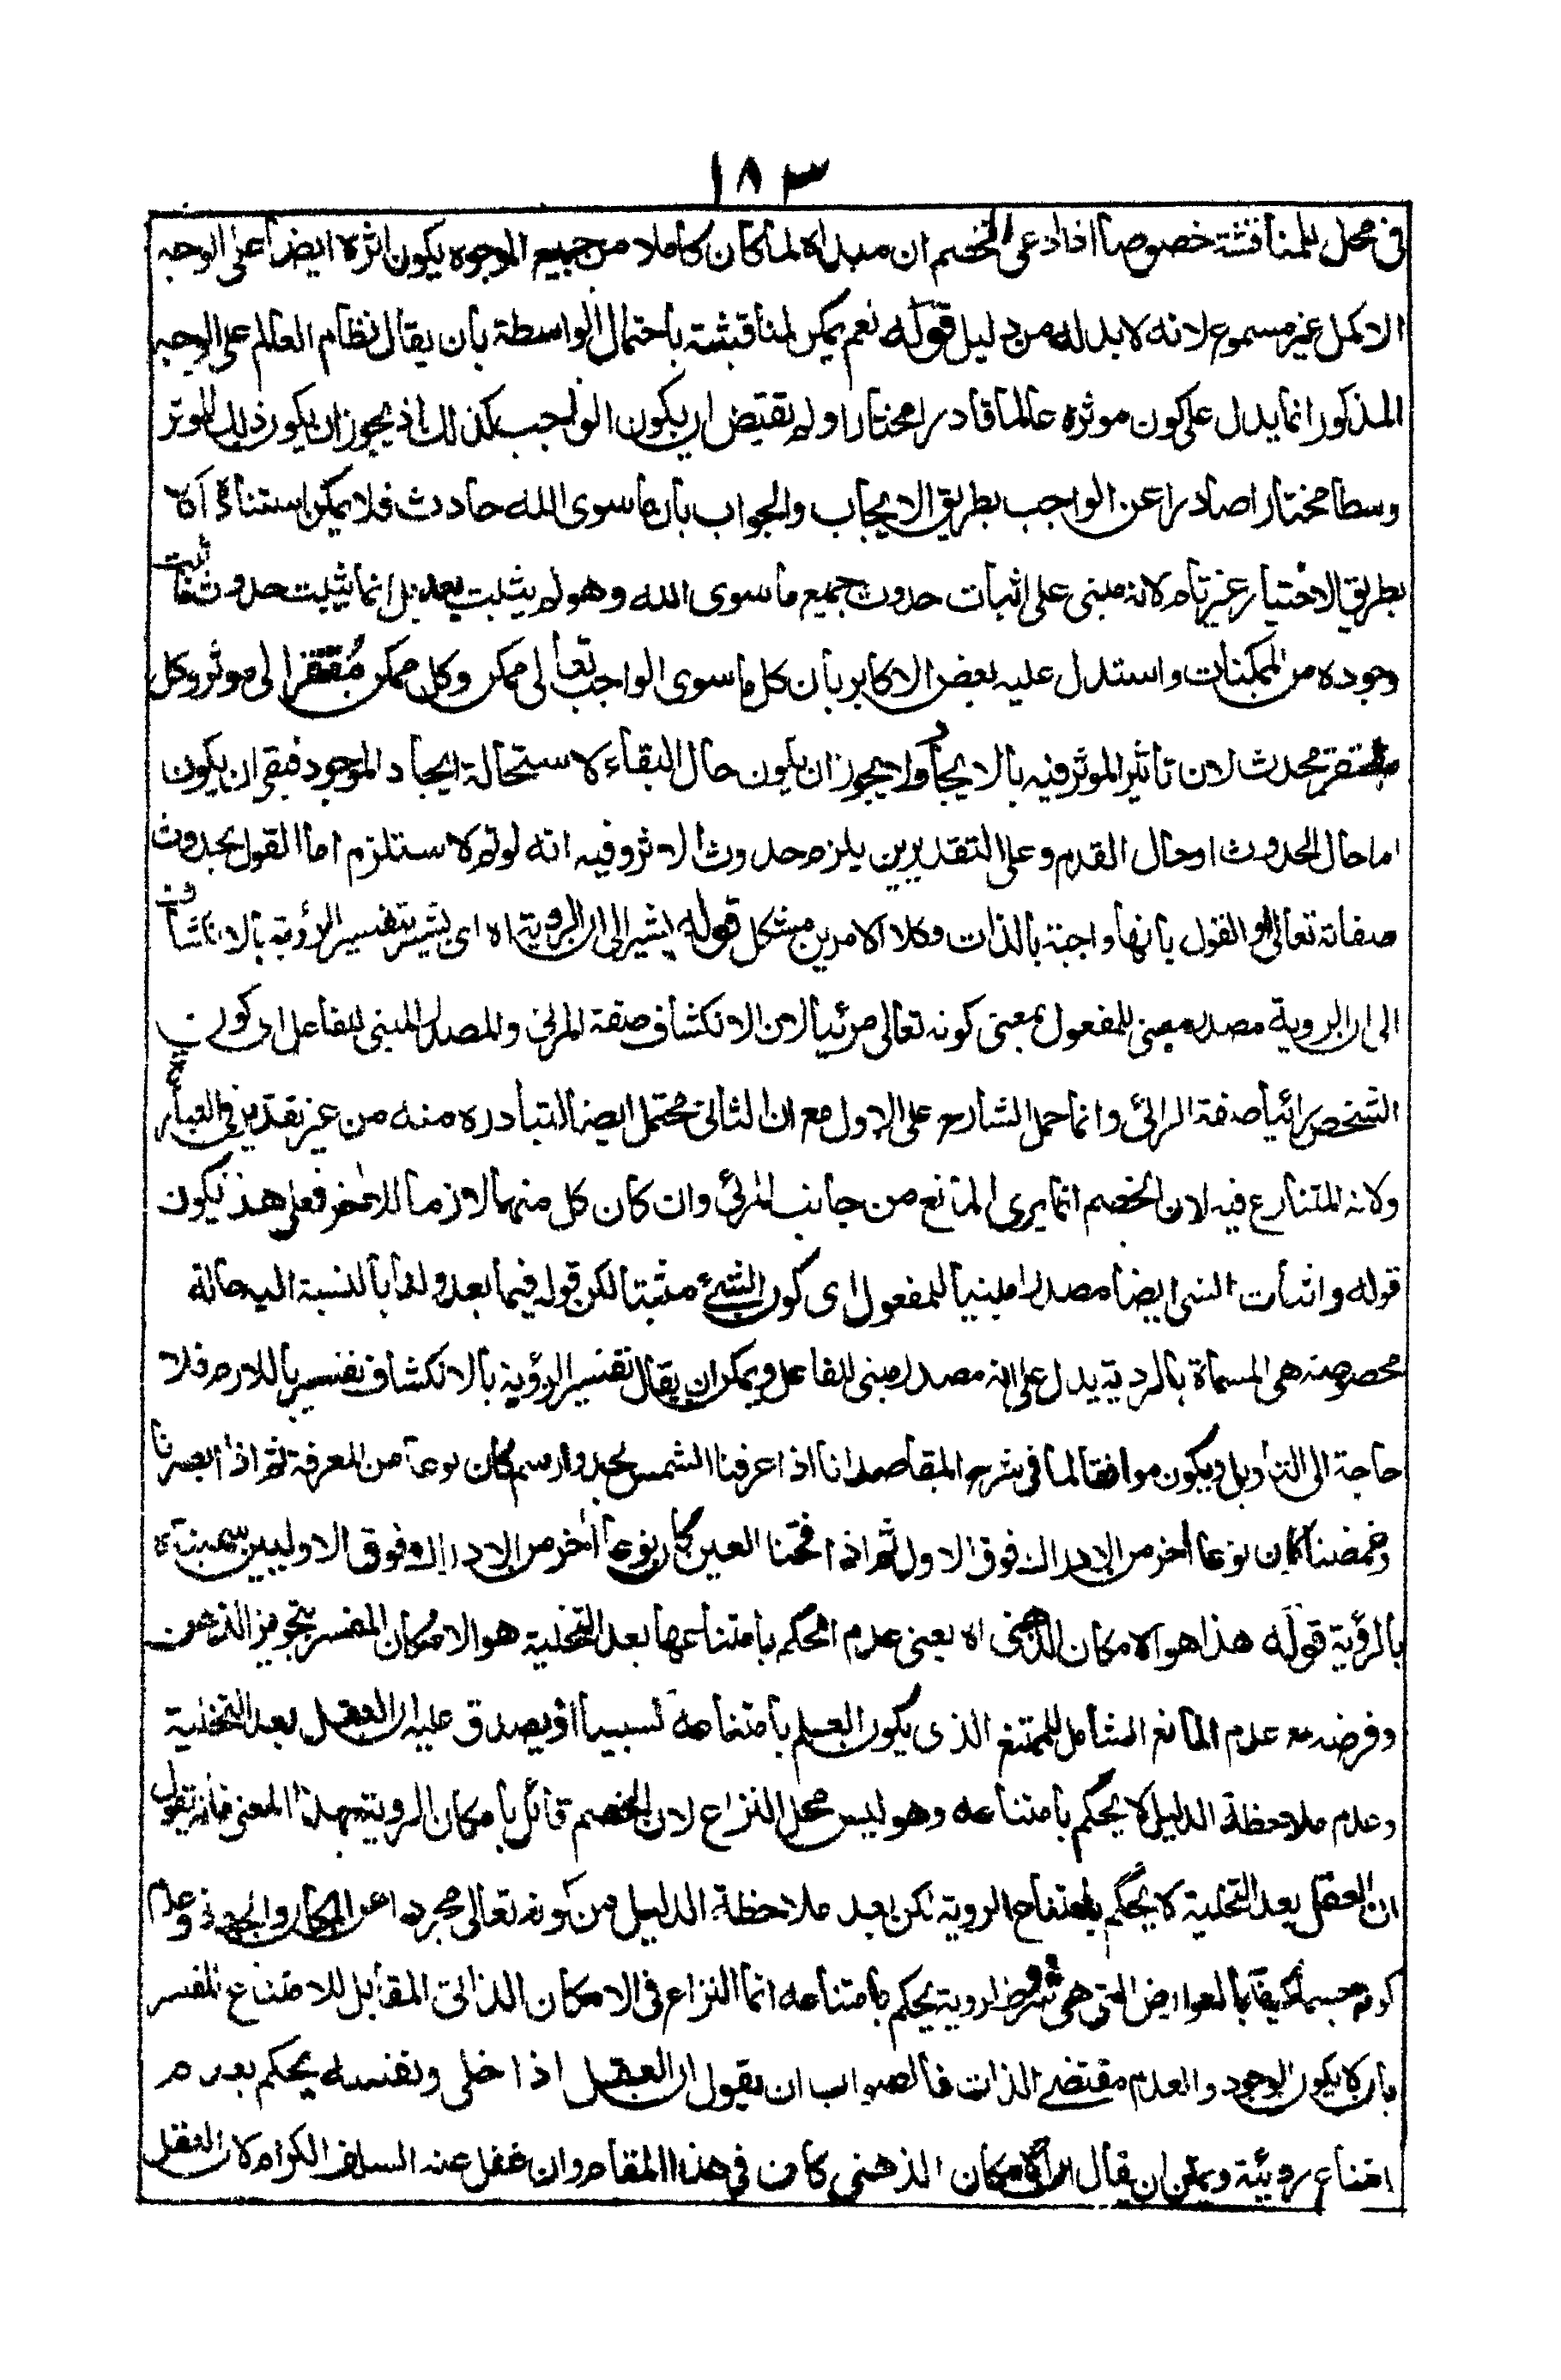 ١٨٣
فى محل المناقشة خصوصا اذا ادعى الخصم ان مبداه لما كان كاملا من جميع الوجوه يكون اثره ايضا على الوجه
الاكمل غير مسموع لانه لا بد له من دليل قوله نعم يمكن المناقشة باحتمال الواسطة بان يقال نظام العالم على الوجه
المذكور انما يدل على كون موثره عالما قادرا مختارا ولم يقتض ان يكون الواجب كذلك اذ يجوز ان يكون ذلك الموثر
وسطا مختارا صادرا عن الواجب بطريق الايجاب والجواب بان ما سوى الله حادث فلا يمكن استناده الا
بطريق الاختيار غير تام لانه مبنى على اثبات حدوث جميع ما سوى الله وهو لم يثبت بعد بل انما يثبت حدوث ما ثبت
وجوده من الممكنات واستدل عليه بعض الاكابر بان كل ما سوى الواجب تعالى ممكن وكل ممكن مفتقر الى موثر وكل
مفتقر محدث لان تاثير الموثر فيه بالايجاد ولا يجوز ان يكون حال البقاء لاستحالة ايجاد الموجود فبقى ان يكون
اما حال الحدوث او حال القدم وعلى التقديرين يلزم حدوث الاثر وفيه انه لو تم لاستلزم اما القول بحدوث
صفاته تعالى او القول بانها واجبة بالذات وكلا الامرين مشكل قوله يشير الى ان الروية اه اى يشير تفسير الرؤية بالانكشاف
الى ان الروية مصدر مبنى للمفعول بمعنى كونه تعالى مرئيا لان الانكشاف صفة المرئى والمصدر المبنى للفاعل اى كون
الشخص رائيا صفة الرائى وانما حمل الشارح على الاول مع ان الثانى محتمل ايضا لتبادره منه من غير تقدير فى العبارة
ولانه المتنازع فيه لان الخصم انما يرى المانع من جانب المرئى وان كان كل منهما لازما للاخر فعلى هذا يكون
قوله واثبات الشى ايضا مصدرا مبنيا للمفعول اى كون الشئ مثبتا لكن قوله فيما بعد ولنا بالنسبة اليه حالة
مخصوصة هى المسماة بالروية يدل على انه مصدر مبنى للفاعل ويمكن ان يقال تفسير الرؤية بالانكشاف تفسير باللازم فلا
حاجة الى التاويل ويكون موافقا لما فى شرح المقاصد انا اذا عرفنا الشمس بحد او رسم كان نوعا من المعرفة ثم اذا ابصرنا
وغمضنا كان نوعا اخر من الادراك فوق الاول ثم اذا فتحنا العين كان نوعا اخر من الادراك فوق الاوليين سميناه
بالرؤية قوله هذا هو الامكان الذهنى اه يعنى عدم الحكم بامتناعها بعد التخلية هو الامكان المفسر بتجويز الذهن
وفرضه مع عدم المانع الشامل للممتنع الذى يكون العلم بامتناعه نسبيا اذ يصدق عليه ان العقل بعد التخلية
وعدم ملاحظة الدليل لا يحكم بامتناعه وهو ليس محل النزاع لان الخصم قائل بامكان الروية بهذا المعنى فانه يقول
ان العقل بعد التخلية لا يحكم بامتناع الروية لكن بعد ملاحظة الدليل من كونه تعالى مجردا عن المكان والجهة وعدم
كونه جسما مكيفا بالعوارض التى هى شروط الروية يحكم بامتناعه انما النزاع فى الامكان الذاتى المقابل للامتناع المفسر
بان لا يكون الوجود والعدم مقتضى الذات فالصواب ان يقول ان العقل اذا خلى ونفسه يحكم بعدم
امتناع رويئة ويمكن ان يقال ان الامكان الذهنى كاف فى هذا المقام وان غفل عنه السلف الكرام لان العقل